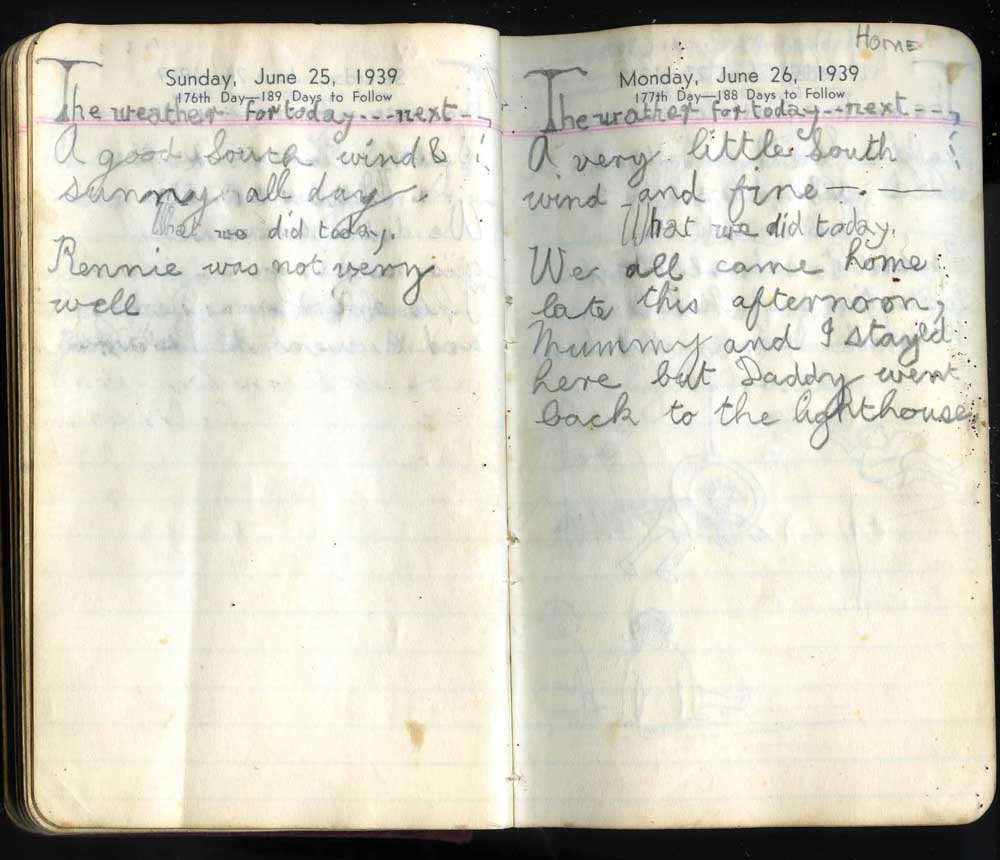 Sunday, June 25, 1939
176th Day—189 Days to Follow
The weather for today---next--,
A good South wind &
sunny all day.
What we did today.
Rennie was not very
well
HOME
Monday, June 26, 1939
177th Day—188 Days to Follow
The wrather for today---next--,
A very little South
wind and fine—. —
What we did today.
We all came home
late this afternoon,
Mummy and I stayed
here but Daddy went
back to the lighthouse.